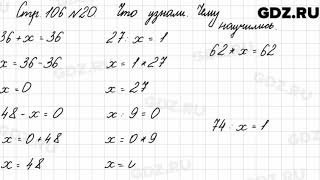 GDZ.RU
Стр. 106 №20. Что узнали. Чему
научились.
36 + x = 36
x = 36 - 36
x = 0
48 - x = 0
x = 0 + 48
x = 48
27 : x = 1
x = 1 * 27
x = 27
x : 9 = 0
x = 0 * 9
x =
62 * x = 62
74 : x = 1